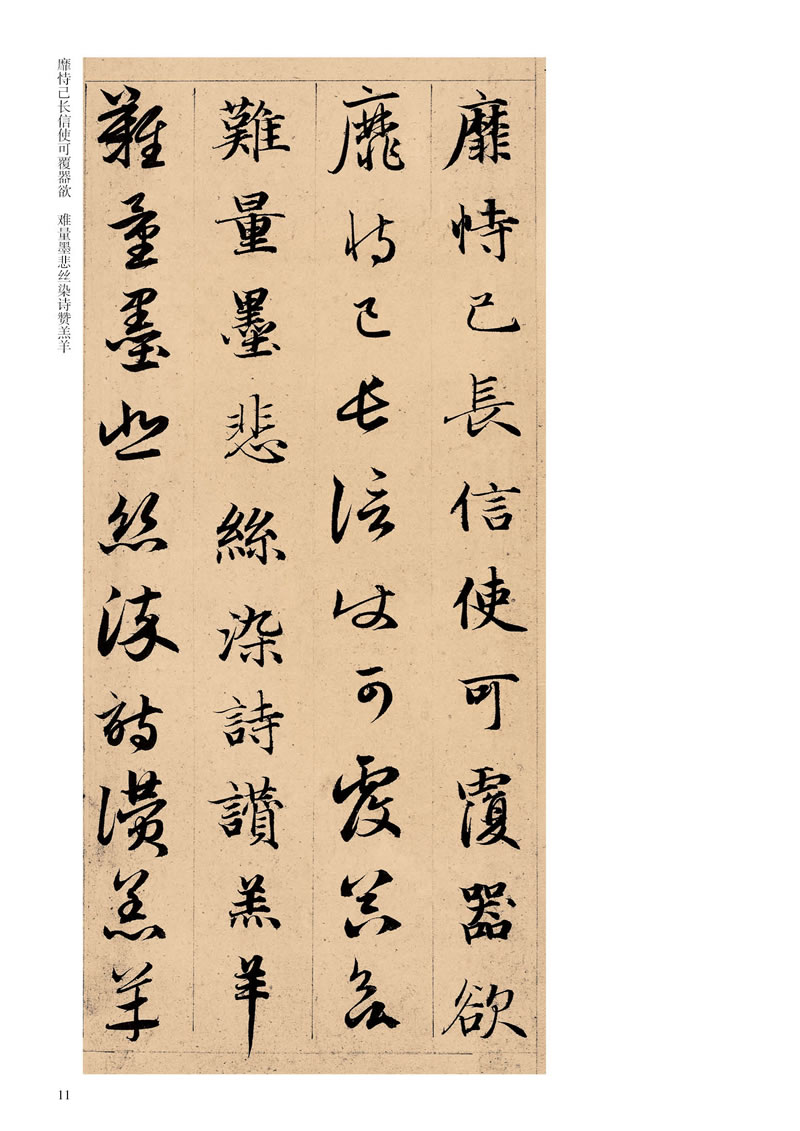 靡恃己長信使可覆器欲
靡恃己長信使可覆器欲
難量墨悲絲染詩讚羔羊
難量墨悲絲染詩讚羔羊
靡恃己长信使可覆器欲　难量墨悲丝染诗赞羔羊
11